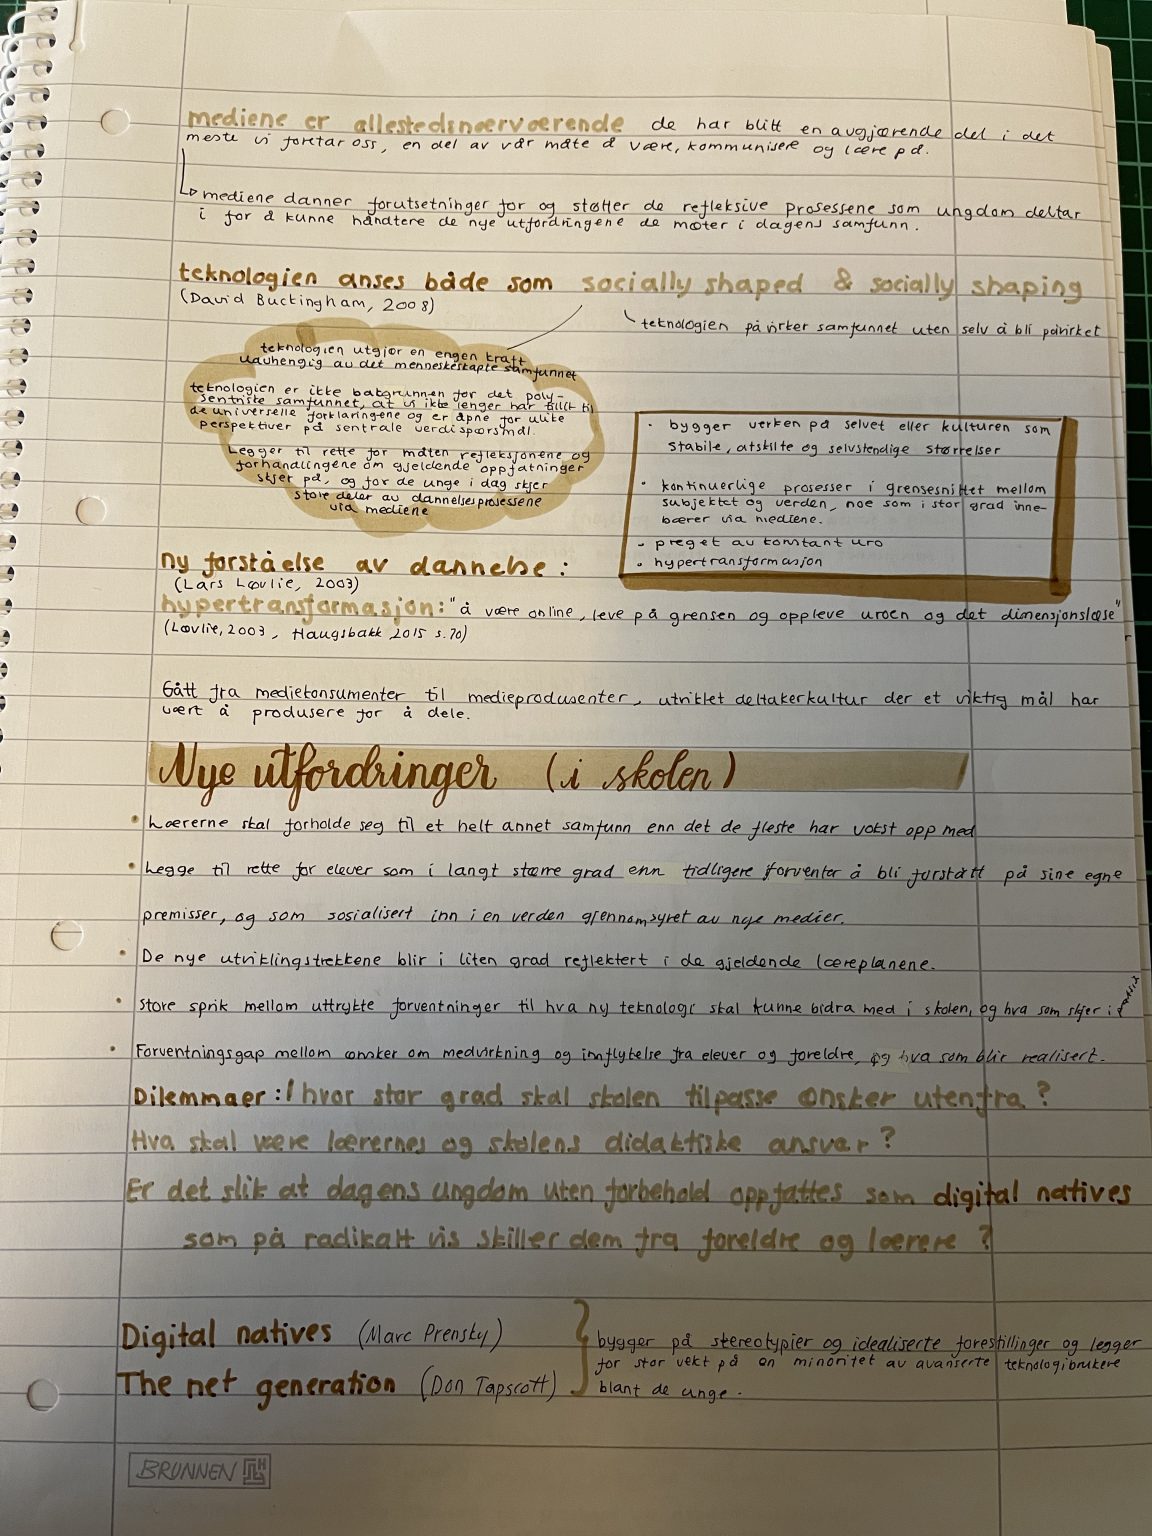 mediene er allestedsnærværende de har blitt en avgjørende del i det
meste vi foretar oss, en del av vår måte å være, kommunisere og lære på.
mediene danner forutsetninger for og støtter de refleksive prosessene som ungdom deltar
i for å kunne håndtere de nye utfordringene de møter i dagens samfunn.
teknologien anses både som socially shaped & socially shaping
(David Buckingham, 2008)
teknologien påvirker samfunnet uten selv å bli påvirket
teknologien utgjør en engen kraft
uavhengig av det menneskeskapte samfunnet
teknologien er ikke bakgrunnen for det poly-
sentriske samfunnet, at vi ikke lenger har tillit til
de universelle forklaringene og er åpne for ulike
perspektiver på sentrale verdispørsmål.
Legger til rette for måten refleksjonene og
forhandlingene om gjeldende oppfatninger
skjer på, og for de unge i dag skjer
store deler av dannelsesprosessene
via mediene
• bygger verken på selvet eller kulturen som
stabile, atskilte og selvstendige størrelser
• kontinuerlige prosesser i grensesnittet mellom
subjektet og verden, noe som i stor grad inne-
bærer via mediene.
• preget av konstant uro
• hypertransformasjon
ny forståelse av dannelse:
(Lars Løvlie, 2003)
hypertransformasjon: "å være online, leve på grensen og oppleve uroen og det dimensjonsløse"
(Løvlie, 2003, Haugsbakk 2015 s.70)
Gått fra mediekonsumenter til medieprodusenter, utviklet deltakerkultur der et viktig mål har
vært å produsere for å dele.
Nye utfordringer (i skolen)
• Lærerne skal forholde seg til et helt annet samfunn enn det de fleste har vokst opp med
• Legge til rette for elever som i langt større grad enn tidligere forventer å bli forstått på sine egne
premisser, og som sosialisert inn i en verden gjennomsyret av nye medier.
• De nye utviklingstrekkene blir i liten grad reflektert i de gjeldende læreplanene.
• Store sprik mellom uttrykte forventninger til hva ny teknologi skal kunne bidra med i skolen, og hva som skjer i
• Forventningsgap mellom ønsker om medvirkning og innflytelse fra elever og foreldre, og hva som blir realisert.
Dilemmaer: I hvor stor grad skal skolen tilpasse ønsker utenfra?
Hva skal være lærernes og skolens didaktiske ansvar?
Er det slik at dagens ungdom uten forbehold oppfattes som digital natives
som på radikalt vis skiller dem fra foreldre og lærere?
Digital natives (Marc Prensky)
The net generation (Don Tapscott)
bygger på stereotypier og idealiserte forestillinger og legger
for stor vekt på en minoritet av avanserte teknologibrukere
blant de unge.
BRUNNEN